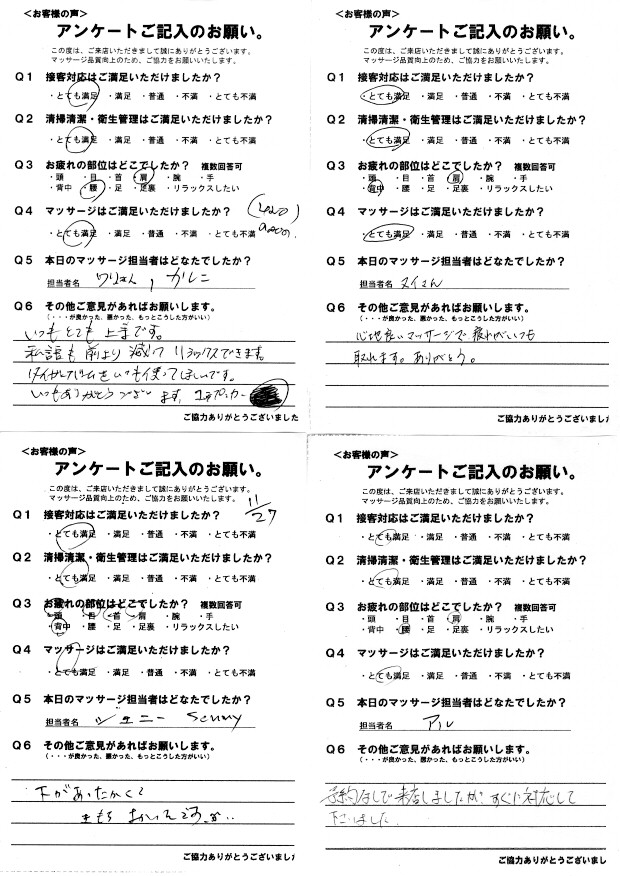 ＜お客様の声＞
アンケートご記入のお願い。
この度は、ご来店いただきまして誠にありがとうございます。
マッサージ品質向上のため、ご協力をお願いいたします。
Q1 接客対応はご満足いただけましたか？
・とても満足 ・満足 ・普通 ・不満 ・とても不満
Q2 清掃清潔・衛生管理はご満足いただけましたか？
・とても満足 ・満足 ・普通 ・不満 ・とても不満
Q3 お疲れの部位はどこでしたか？ 複数回答可
・頭 ・目 ・首 ・肩 ・腕 ・手
・背中 ・腰 ・足 ・足裏 ・リラックスしたい
Q4 マッサージはご満足いただけましたか？
・とても満足 ・満足 ・普通 ・不満 ・とても不満
Q5 本日のマッサージ担当者はどなたでしたか？
担当者名
Q6 その他ご意見があればお願いします。
（・・・が良かった、悪かった、もっとこうした方がいい）
いつもとても上手です。
私語も前より減って リラックスできます。
をいつも使ってほしいです。
いつもありがとうございます。
ご協力ありがとうございました
＜お客様の声＞
アンケートご記入のお願い。
この度は、ご来店いただきまして誠にありがとうございます。
マッサージ品質向上のため、ご協力をお願いいたします。
Q1 接客対応はご満足いただけましたか？
・とても満足 ・満足 ・普通 ・不満 ・とても不満
Q2 清掃清潔・衛生管理はご満足いただけましたか？
・とても満足 ・満足 ・普通 ・不満 ・とても不満
Q3 お疲れの部位はどこでしたか？ 複数回答可
・頭 ・目 ・首 ・肩 ・腕 ・手
・背中 ・腰 ・足 ・足裏 ・リラックスしたい
Q4 マッサージはご満足いただけましたか？
・とても満足 ・満足 ・普通 ・不満 ・とても不満
Q5 本日のマッサージ担当者はどなたでしたか？
担当者名 ヌイさん
Q6 その他ご意見があればお願いします。
（・・・が良かった、悪かった、もっとこうした方がいい）
心地良いマッサージで疲れがいつも
取れます。ありがとう。
ご協力ありがとうございまし
＜お客様の声＞
アンケートご記入のお願い。
この度は、ご来店いただきまして誠にありがとうございます。
マッサージ品質向上のため、ご協力をお願いいたします。
11/27
Q1 接客対応はご満足いただけましたか？
・とても満足 ・満足 ・普通 ・不満 ・とても不満
Q2 清掃清潔・衛生管理はご満足いただけましたか？
・とても満足 ・満足 ・普通 ・不満 ・とても不満
Q3 お疲れの部位はどこでしたか？ 複数回答可
・頭 ・目 ・首 ・肩 ・腕 ・手
・背中 ・腰 ・足 ・足裏 ・リラックスしたい
Q4 マッサージはご満足いただけましたか？
・とても満足 ・満足 ・普通 ・不満 ・とても不満
Q5 本日のマッサージ担当者はどなたでしたか？
担当者名 ジェニー
Q6 その他ご意見があればお願いします。
（・・・が良かった、悪かった、もっとこうした方がいい）
下があったかくて
きもち
ご協力ありがとうございました
＜お客様の声＞
アンケートご記入のお願い。
この度は、ご来店いただきまして誠にありがとうございます。
マッサージ品質向上のため、ご協力をお願いいたします。
Q1 接客対応はご満足いただけましたか？
・とても満足 ・満足 ・普通 ・不満 ・とても不満
Q2 清掃清潔・衛生管理はご満足いただけましたか？
・とても満足 ・満足 ・普通 ・不満 ・とても不満
Q3 お疲れの部位はどこでしたか？ 複数回答可
・頭 ・目 ・首 ・肩 ・腕 ・手
・背中 ・腰 ・足 ・足裏 ・リラックスしたい
Q4 マッサージはご満足いただけましたか？
・とても満足 ・満足 ・普通 ・不満 ・とても不満
Q5 本日のマッサージ担当者はどなたでしたか？
担当者名 アル
Q6 その他ご意見があればお願いします。
（・・・が良かった、悪かった、もっとこうした方がいい）
予約なしで来店しましたが、すぐに対応して
下さいました
ご協力ありがとうございまし